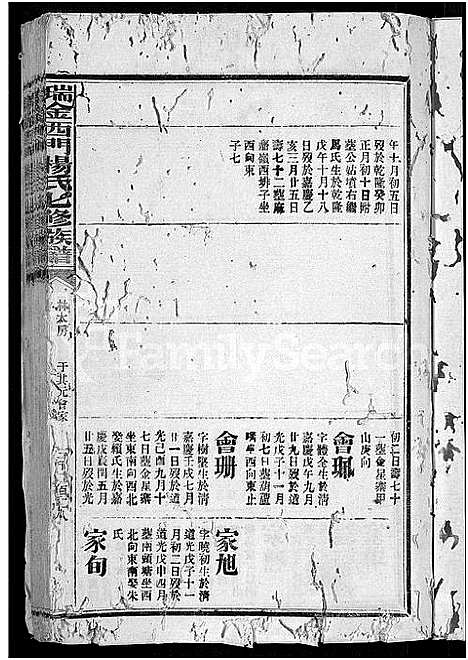 午十月初五日
歿於乾隆癸卯
正月初十日附
塟公姑墳右繼
馬氏生於乾隆
戊午十月十八
歿於嘉慶乙
亥三月廿五日
壽七十二塟麻
嶺西排子坐
西向東
子七
初二日壽七十
一塟金星寨甲
山庚向
會郷
字體全生於清
嘉慶戊午九月
廿九日歿於道
光戊子十一月
初七日塟葫蘆
坐西向東止
會珊
字樹整生於清
嘉慶壬戌七月
廿一日歿於道
光己酉九月十
七日塟金星寨
坐東南向西北
娶賴氏生於嘉
慶戊辰閏五月
廿五日歿於光
家旭
字曉初生於清
道光戊子十一
月初二日歿於
道光戊申四月
塟南頭塘坐西
北向東南娶朱
氏
家旬
瑞金西門楊氏七修族譜
林太房
Family Search